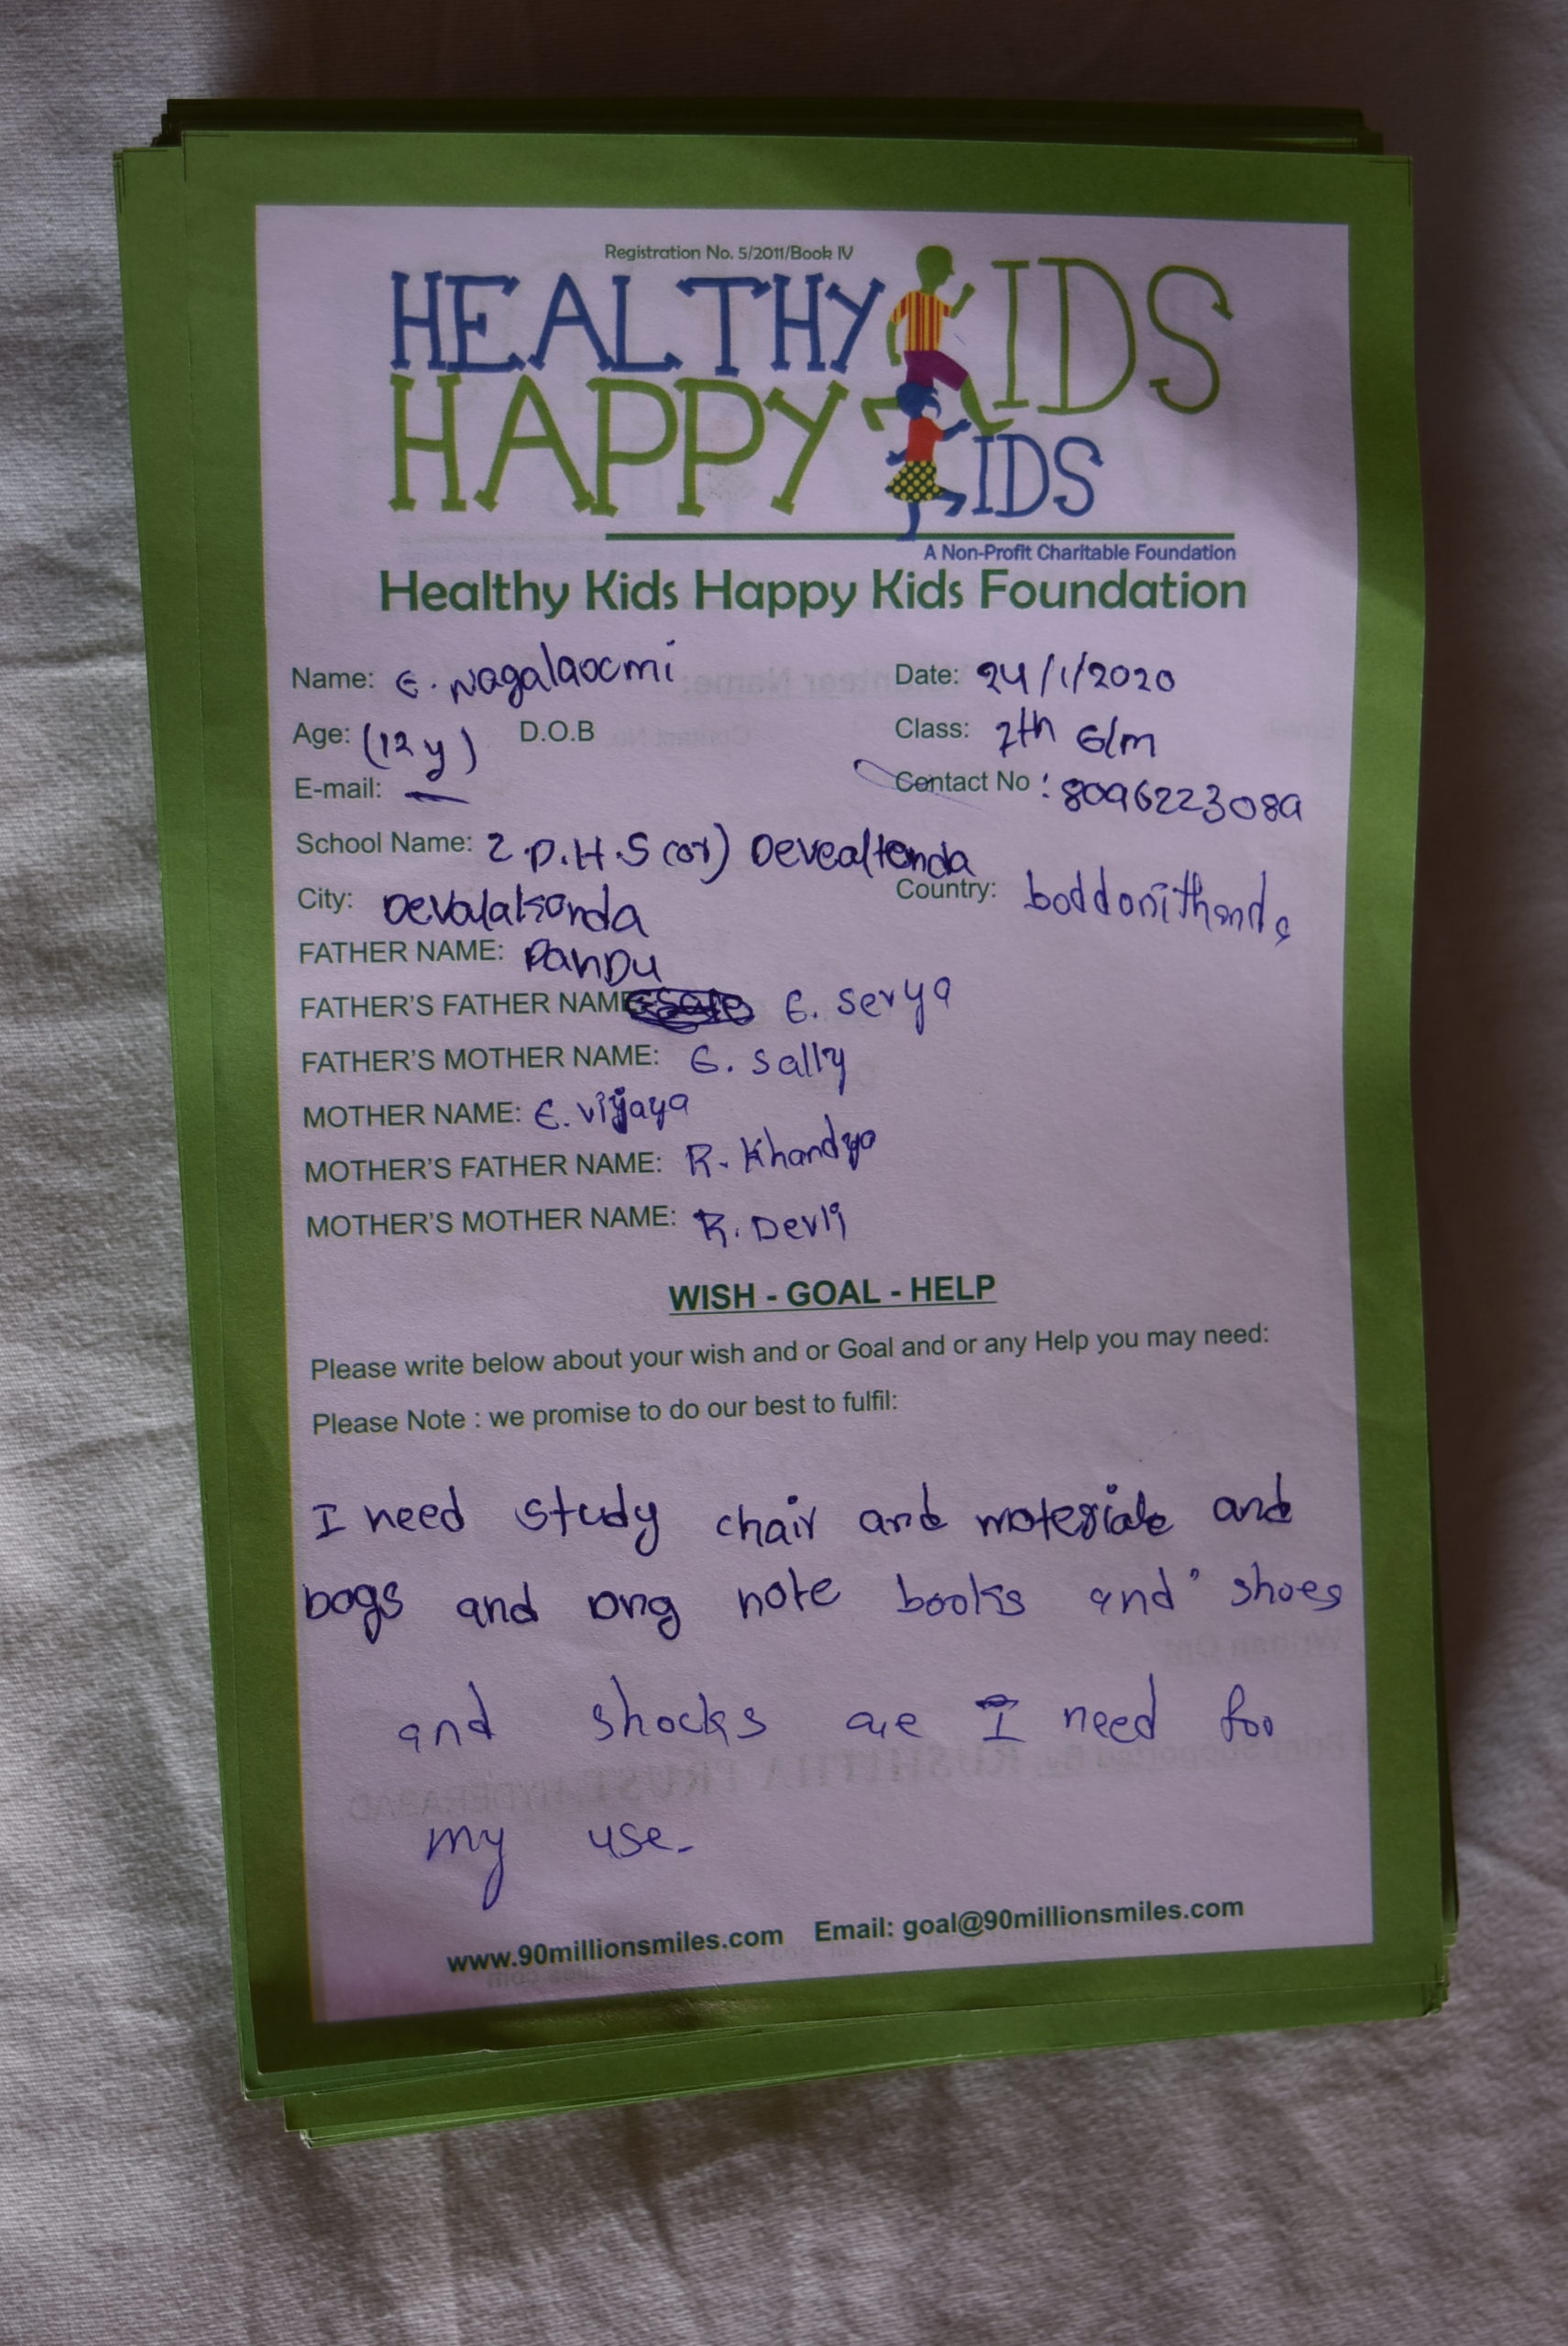 Registration No. 5/2011/Book IV
HEALTHY KIDS
HAPPY KIDS
A Non-Profit Charitable Foundation
Healthy Kids Happy Kids Foundation
Name: E. Nagalaxmi Date: 24/1/2020
Age: (12 y) D.O.B Class: 7th E/m
E-mail: — Contact No : 8096223089
School Name: Z.P.H.S (or)
City: Devalakonda Country: boddonithanda
FATHER NAME: Pandu
FATHER'S FATHER NAME E. Serya
FATHER'S MOTHER NAME: E. Sally
MOTHER NAME: E. Vijaya
MOTHER'S FATHER NAME: R. Khandya
MOTHER'S MOTHER NAME: R. Devli
WISH - GOAL - HELP
Please write below about your wish and or Goal and or any Help you may need:
Please Note : we promise to do our best to fulfil:
I need study chair and and
bags and note books and shoes
and shocks are I need for
my use.
www.90millionsmiles.com Email: goal@90millionsmiles.com